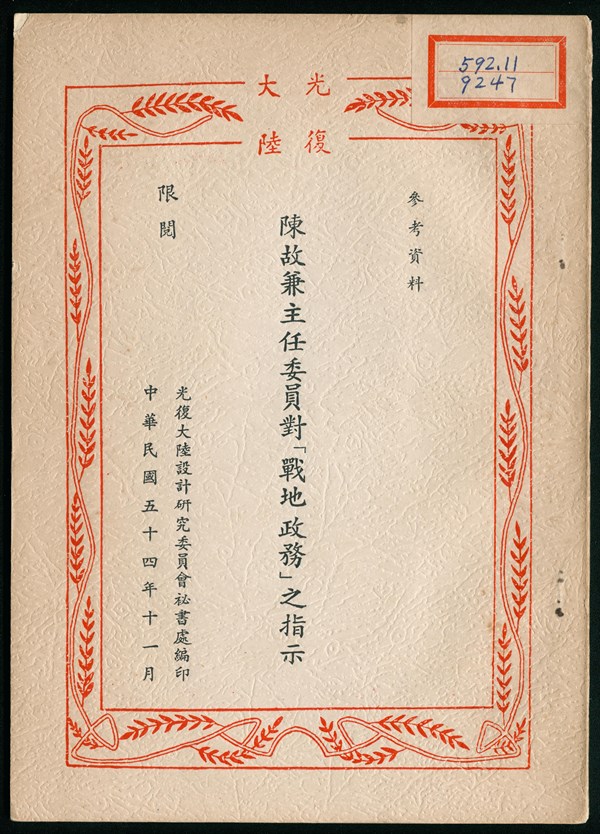 592.11
9247
光復大陸
參考資料
陳故兼主任委員對「戰地政務」之指示
限閱
光復大陸設計研究委員會祕書處編印
中華民國五十四年十一月